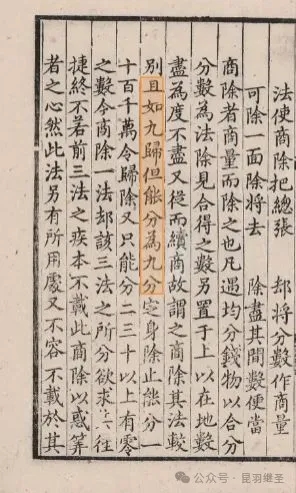 法使商除把總張　却將分數作商量
可除一面除將去　除盡其間數便當
商除者商量而除之也凡遇均分錢物以合分
分數為法除見合得之數另置于上以在地數
盡為度不盡又從而續商故謂之商除其法較
別且如九歸但能分為九分定身除止能分一
十百千萬令歸除又只能分二三十以上有零
之數令商除一法却該三法之所分欲求徃
捷終不若前三法之疾本不載此商除以惑筭
者之心然此法另有所用處又不容不載於其
公众号·昆羽继圣